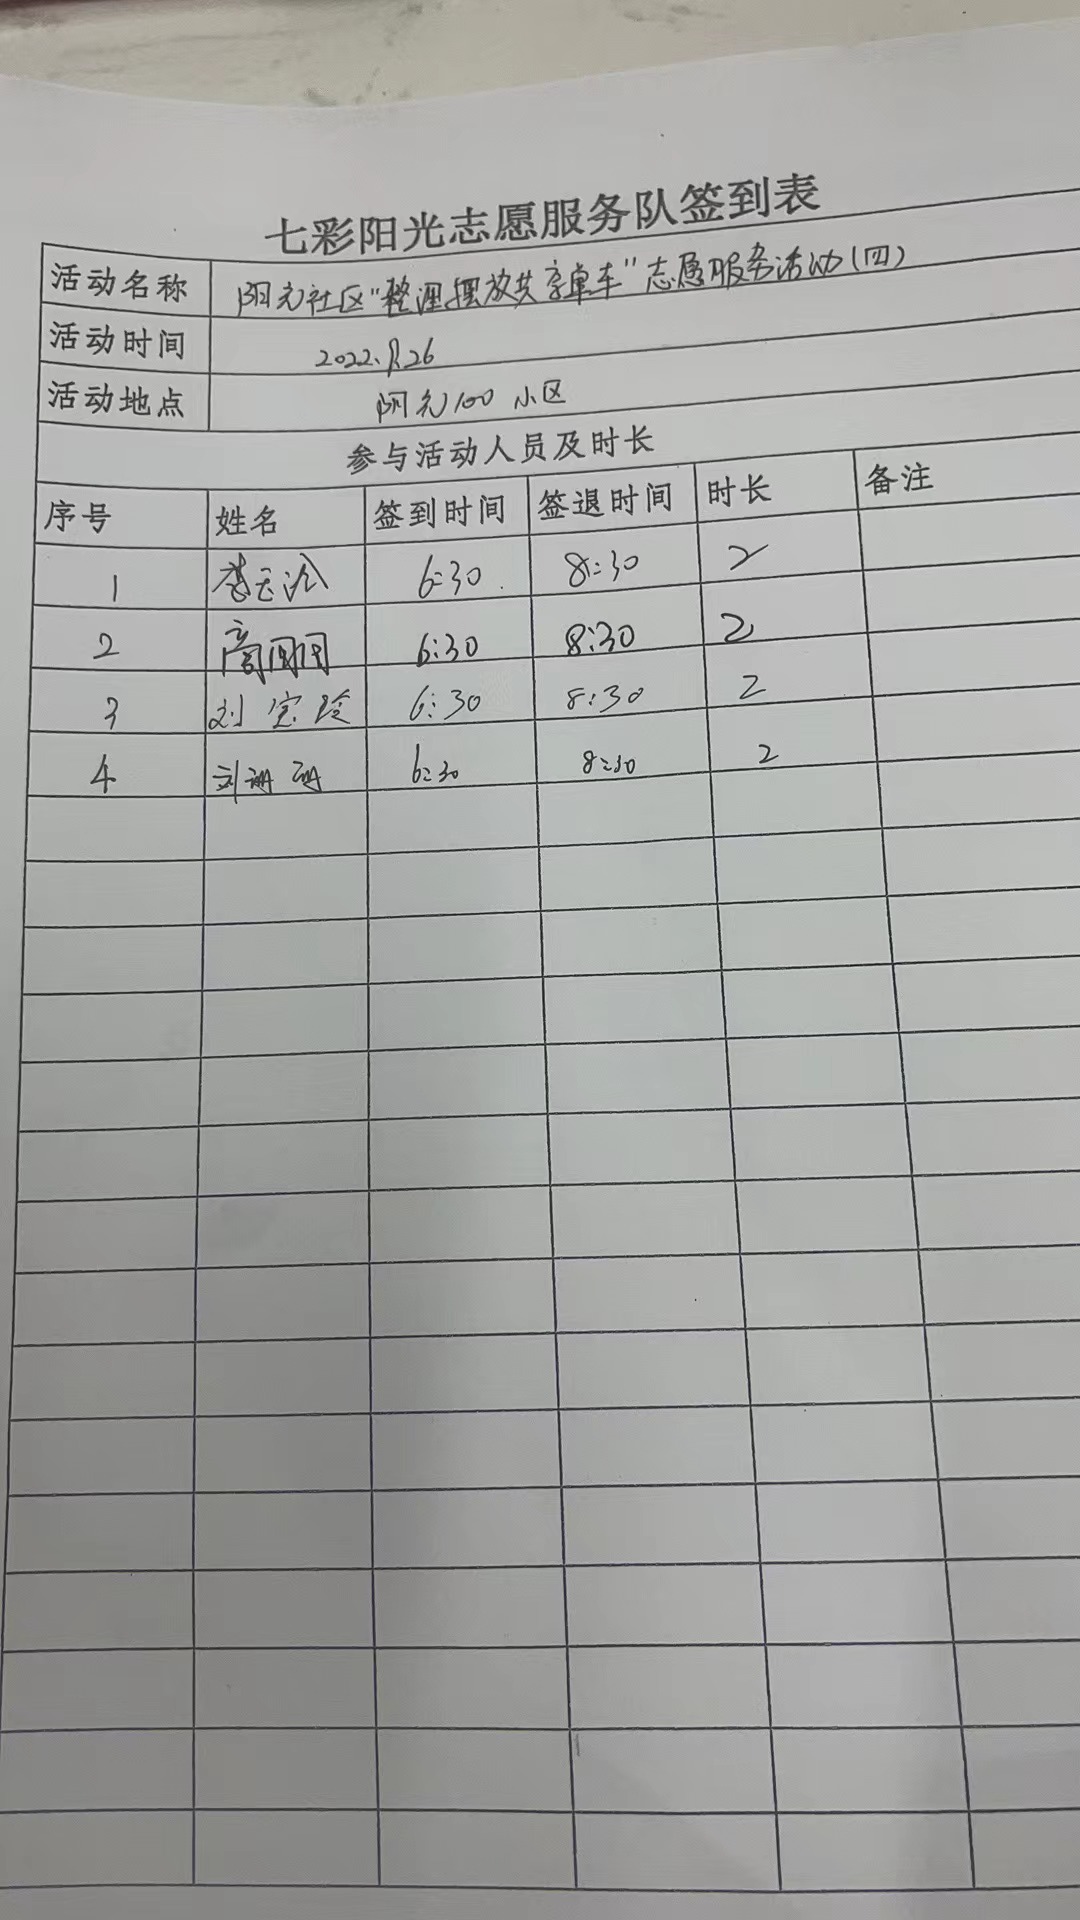 七彩阳光志愿服务队签到表
活动名称 阳光社区“整理摆放共享单车”志愿服务活动(四)
活动时间 2022.
活动地点 阳光100 小区
参与活动人员及时长
序号 姓名 签到时间 签退时间 时长 备注
1 6:30 8:30 2
2 6:30 8:30 2
3 刘宝玲 6:30 8:30 2
4 刘珊珊 6:30 8:30 2